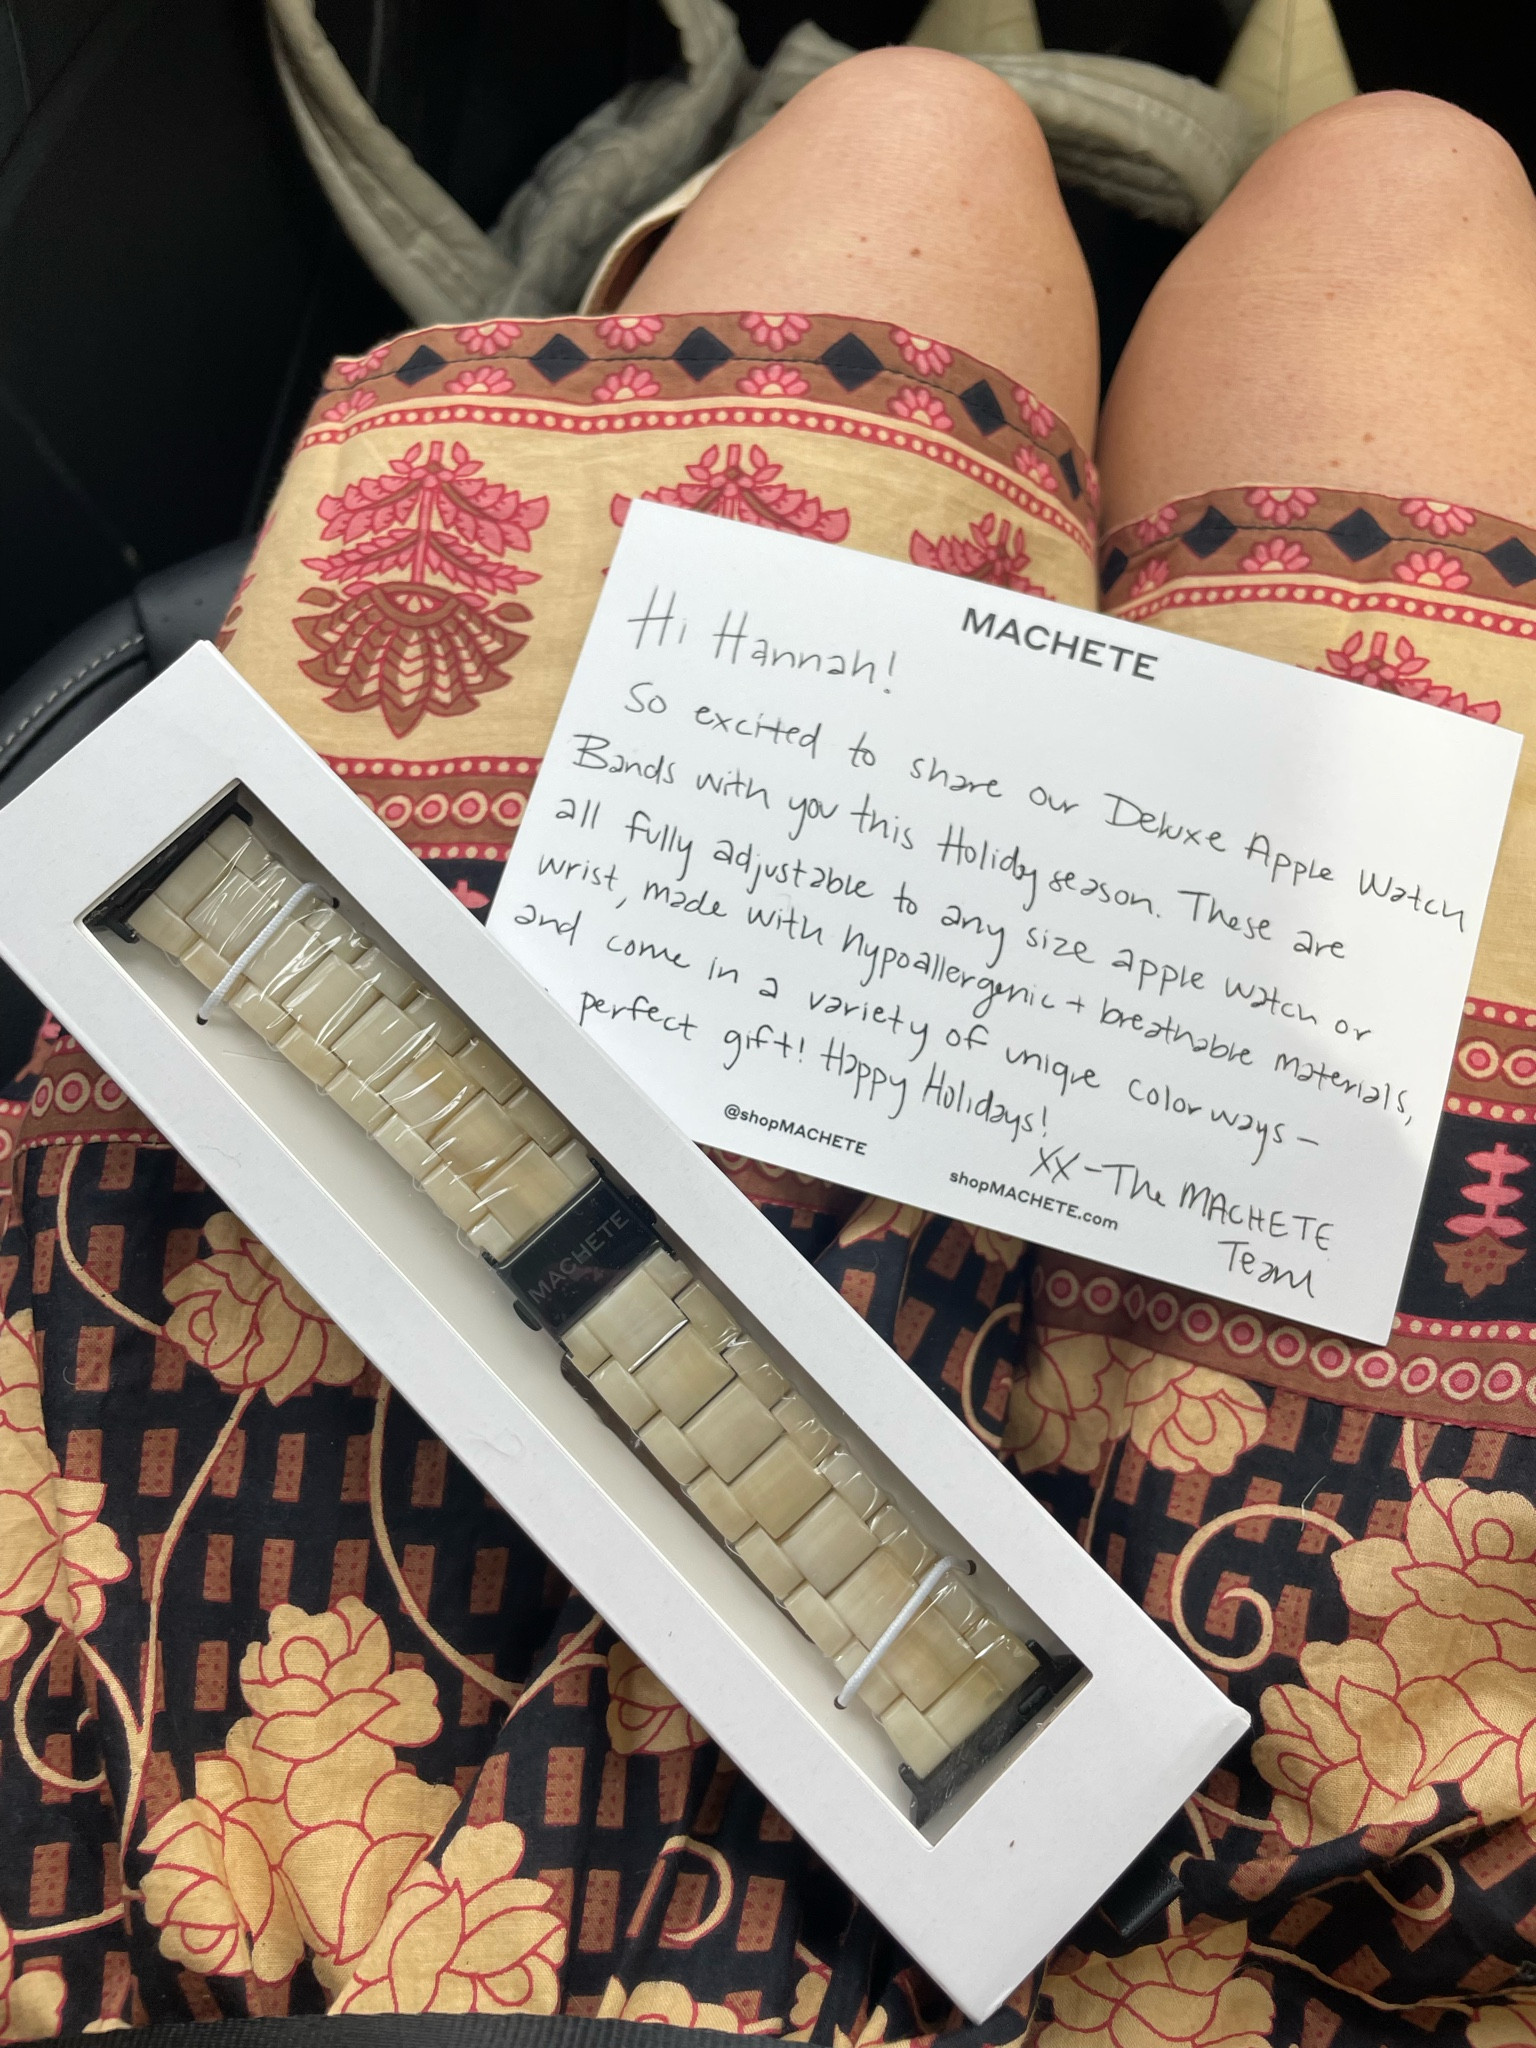 MACHETE
Hi Hannah!
So excited to share our Deluxe Apple Watch
Bands with you this Holiday season. These are
all fully adjustable to any size apple watch or
wrist, made with hypoallergenic + breathable materials,
and come in a variety of unique colorways —
perfect gift! Happy Holidays!
XX - The MACHETE
Team
@shopMACHETE
shopMACHETE.com
MACHETE